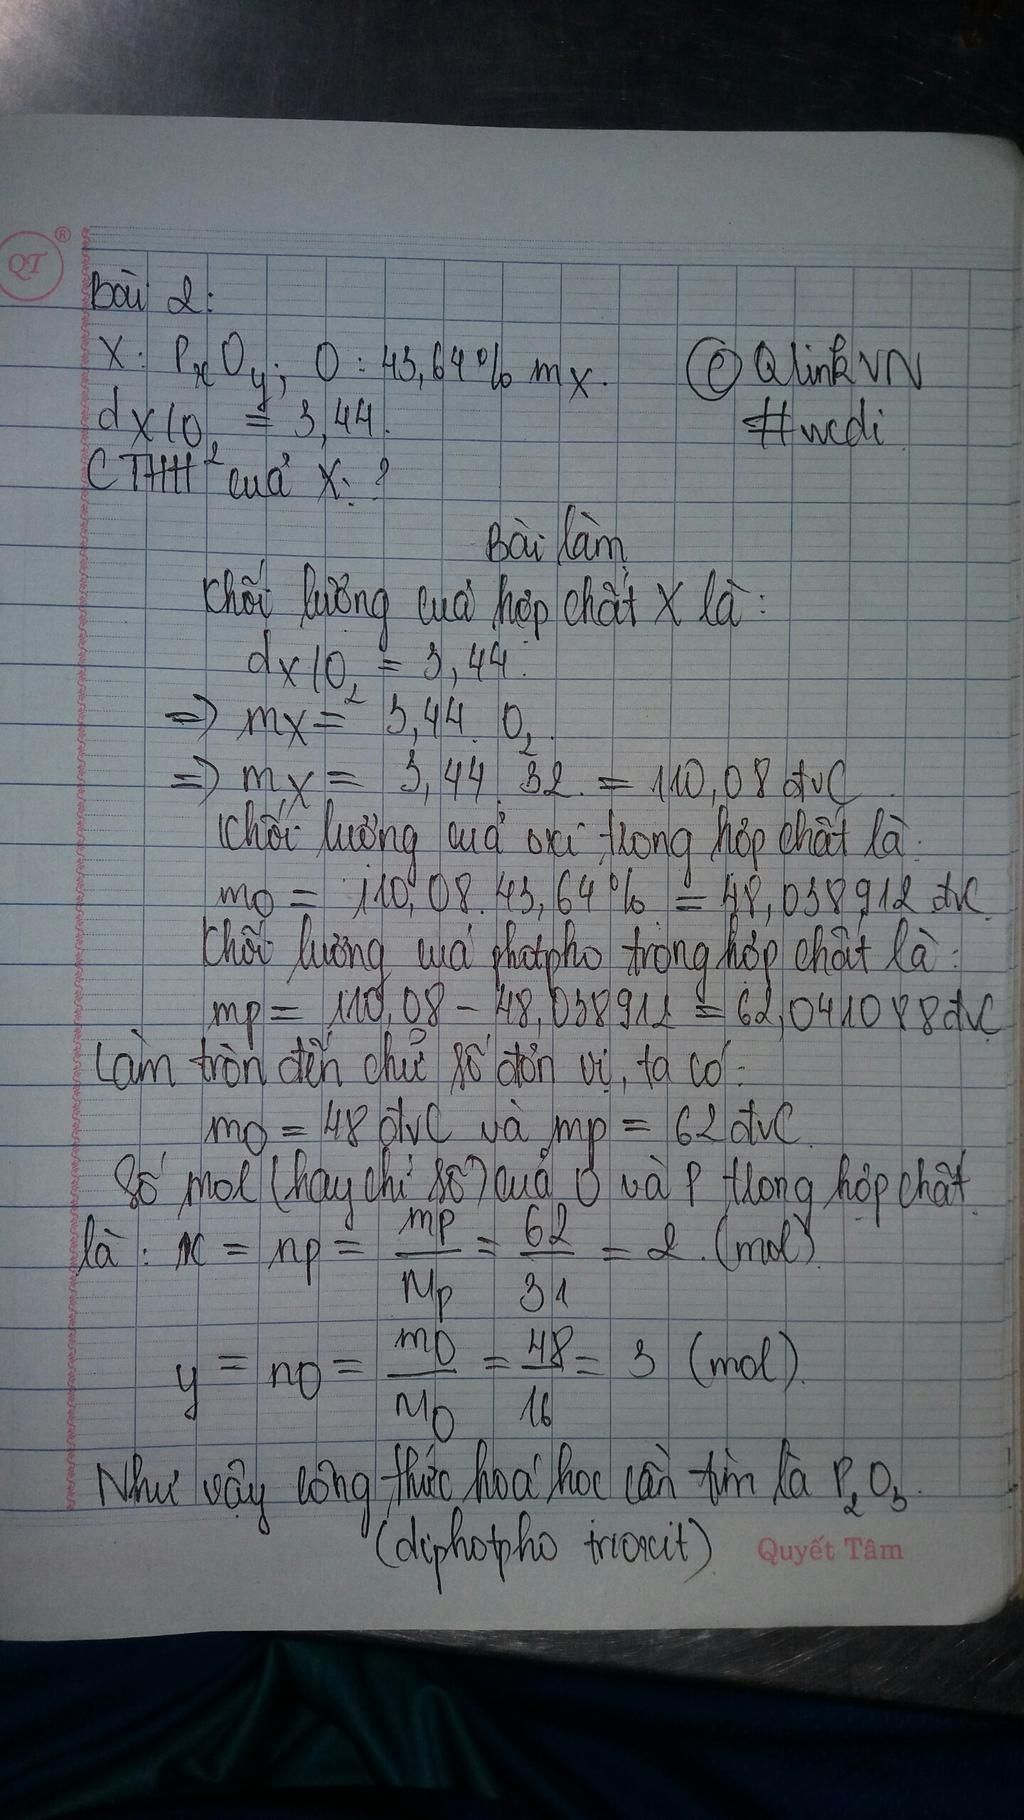 QT ®
Bài 2:
X: PxOy; O: 43,64% mX.
© QlinkVN
dX/O₂ = 3,44.
#wcdi
CTHH của X: ?
Bài làm
Khối lượng của hợp chất X là:
dX/O₂ = 3,44.
=> mX = 3,44. O₂.
=> mX = 3,44. 32. = 110,08 đvC.
Khối lượng của oxi trong hợp chất là:
mO = 110,08. 43,64% = 48,038912 đvC.
Khối lượng của photpho trong hợp chất là:
mP = 110,08 - 48,038912 = 62,041088 đvC
Làm tròn đến chữ số đơn vị, ta có:
mO = 48 đvC và mP = 62 đvC.
Số mol (hay chỉ số) của O và P trong hợp chất
là: x = nP = mP/MP = 62/31 = 2. (mol)
y = nO = mO/MO = 48/16 = 3 (mol).
Như vậy công thức hoá học cần tìm là P₂O₃.
(điphotpho trioxit)
Quyết Tâm